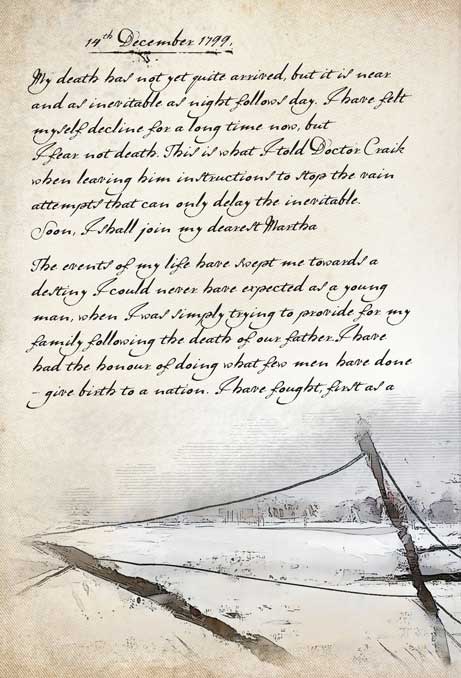 14th December 1799.
My death has not yet quite arrived, but it is near
and as inevitable as night follows day. I have felt
myself decline for a long time now, but
I fear not death. This is what I told Doctor Craik
when leaving him instructions to stop the vain
attempts that can only delay the inevitable.
Soon, I shall join my dearest Martha
The events of my life have swept me towards a
destiny I could never have expected as a young
man, when I was simply trying to provide for my
family following the death of our father. I have
had the honour of doing what few men have done
- give birth to a nation. I have fought, first as a